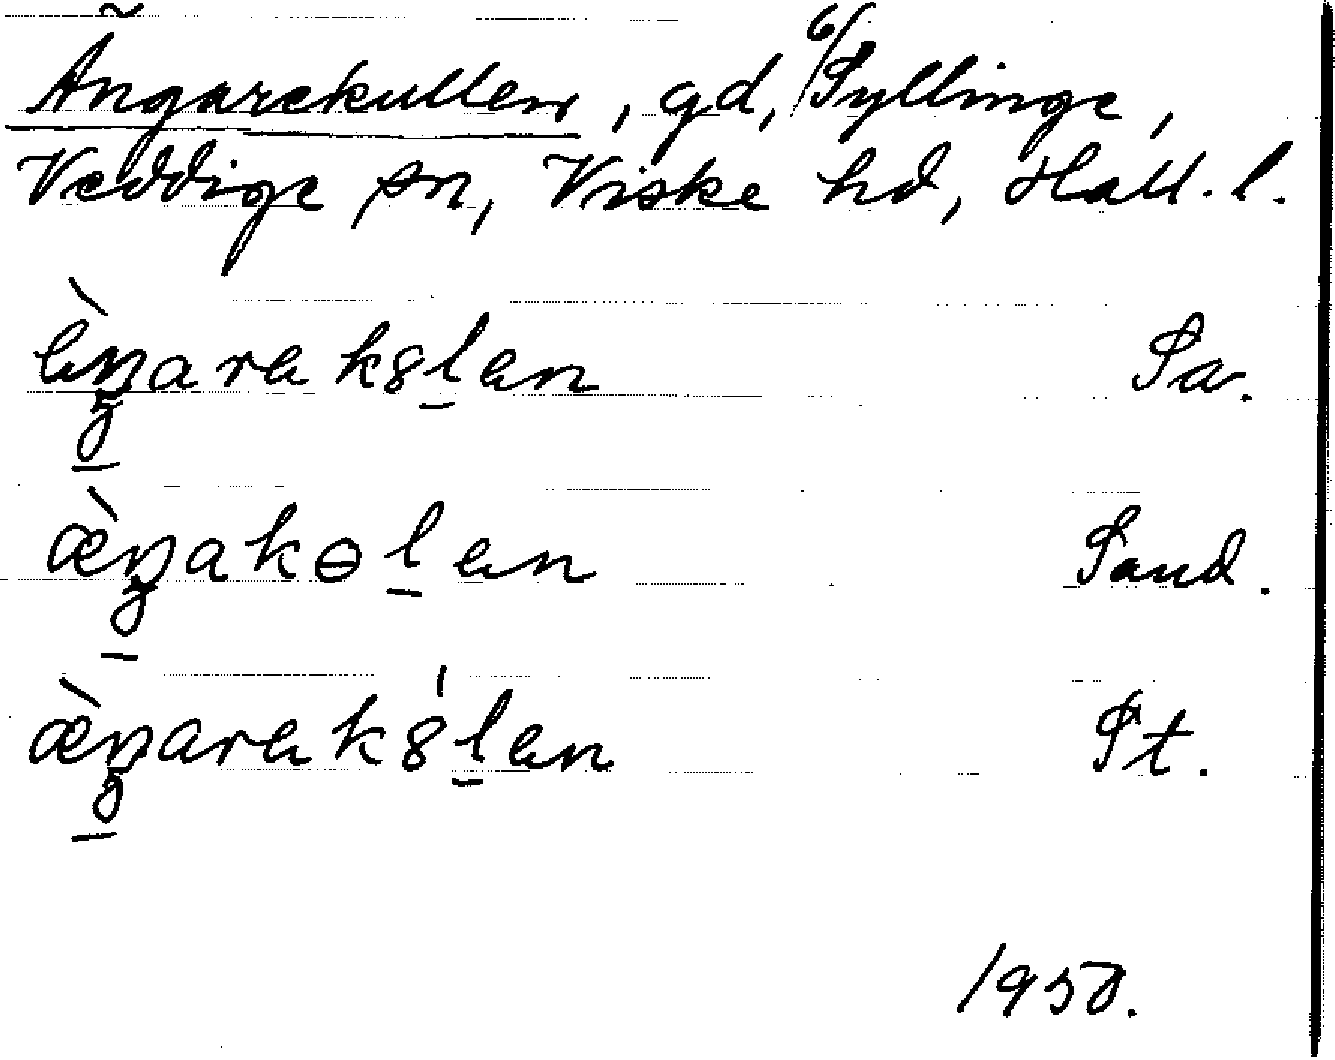 Ängarekullen, gd, 6/Syllinge,
Veddige sn, Viske hd, Hall. l.
àŋarak8lan Sa.
æ̀ŋakɵlan Sand.
æ̀ŋarak8́lan St.
1950.